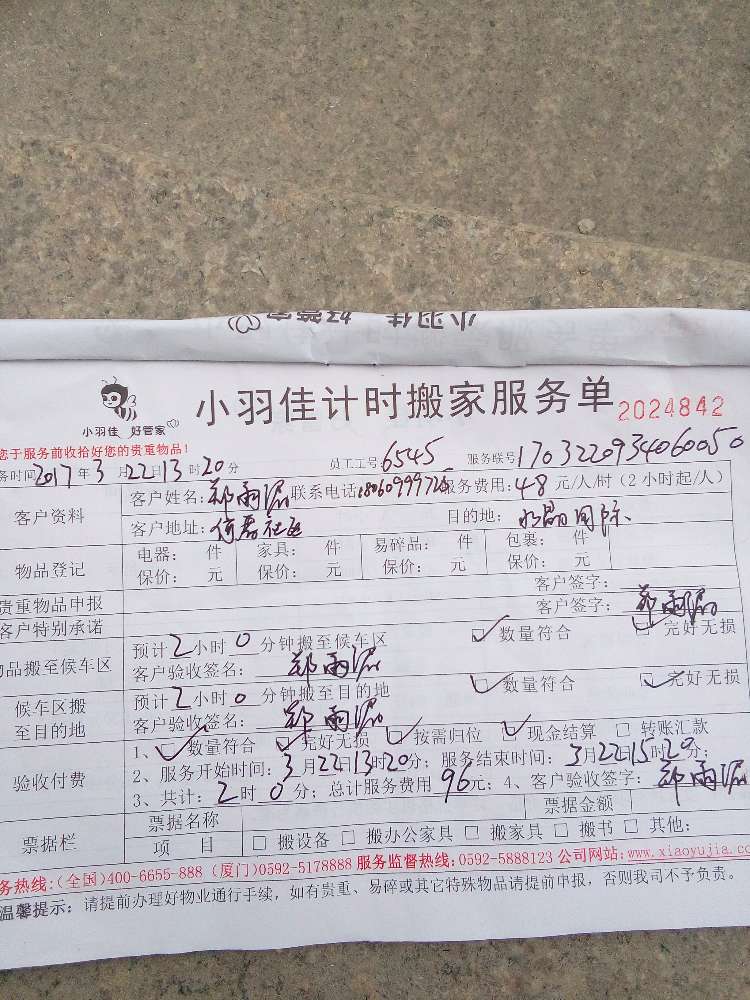 小羽佳 好管家
小羽佳 好管家
小羽佳计时搬家服务单 2024842
您于服务前收拾好您的贵重物品!
务时间2017年3月22日13时20分 员工工号6545 服务联号1703220934060050
客户资料
客户姓名:郑雨 联系电话 服务费用:48元/人/时(2小时起/人)
客户地址:何厝社区 目的地:水晶国际
物品登记
电器: 件 家具: 件 易碎品: 件 包裹: 件
保价: 元 保价: 元 保价: 元 保价: 元
贵重物品申报 客户签字:
客户特别承诺 客户签字:郑雨
物品搬至候车区
预计2小时0分钟搬至候车区 ☑数量符合 ☑完好无损
客户验收签名:郑雨
候车区搬至目的地
预计2小时0分钟搬至目的地 ☑数量符合 ☑完好无损
客户验收签名:郑雨
验收付费
1、☑数量符合 ☑完好无损 ☑按需归位 ☑现金结算 □转账汇款
2、服务开始时间:3月22日13时20分;服务结束时间:3月22日15时20分;
3、共计:2时0分;总计服务费用96元;4、客户验收签字:郑雨
票据栏
票据名称 票据金额
项 目 □搬设备 □搬办公家具 □搬家具 □搬书 □其他:
务热线:(全国)400-6655-888 (厦门)0592-5178888 服务监督热线:0592-5888123 公司网站:www.xiaoyujia.co
温馨提示:请提前办理好物业通行手续,如有贵重、易碎或其它特殊物品请提前申报,否则我司不予负责。